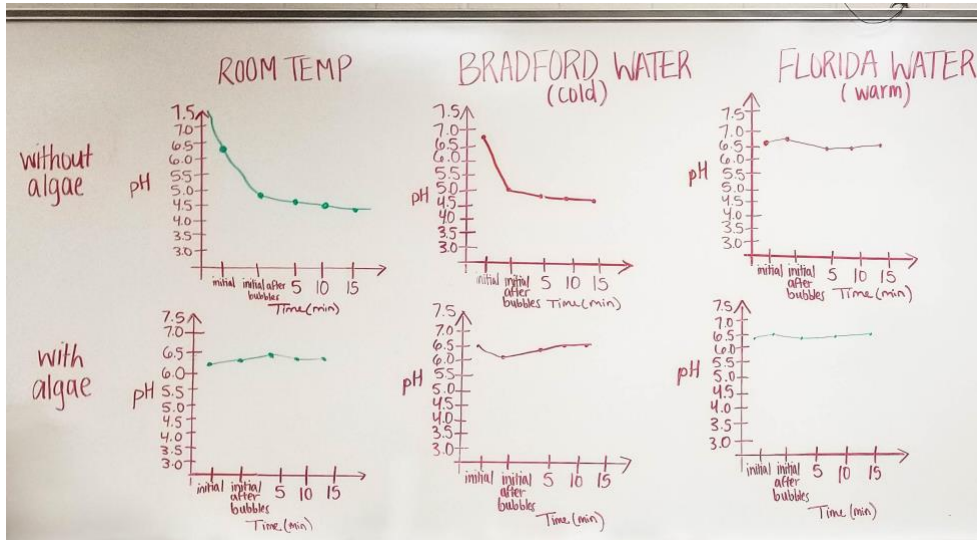 ROOM TEMP
BRADFORD WATER
(cold)
FLORIDA WATER
(warm)
without
algae
pH
7.5
7.0
6.5
6.0
5.5
5.0
4.5
4.0
3.5
3.0
initial
initial after
bubbles
5
10
15
Time (min)
pH
7.5
7.0
6.5
6.0
5.5
5.0
4.5
4.0
3.5
3.0
initial
initial
after
bubbles
5
10
15
Time (min)
pH
7.5
7.0
6.5
6.0
5.5
5.0
4.5
4.0
3.5
3.0
initial
initial
after
bubbles
5
10
15
Time (min)
with
algae
pH
7.5
7.0
6.5
6.0
5.5
5.0
4.5
4.0
3.5
3.0
initial
initial
after
bubbles
5
10
15
Time (min)
pH
7.5
7.0
6.5
6.0
5.5
5.0
4.5
4.0
3.5
3.0
initial
initial
after
bubbles
5
10
15
Time (min)
pH
7.5
7.0
6.5
6.0
5.5
5.0
4.5
4.0
3.5
3.0
initial
initial
after
bubbles
5
10
15
Time (min)